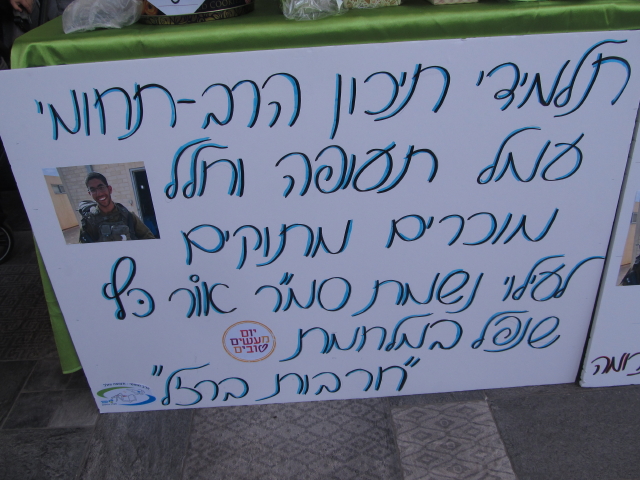 תלמידי תיכון הרב-תחומי
עמל תעופה וחלל
מוכרים מתוקים
לעילוי נשמת סמ"ר אור כץ
שנפל במלחמת
"חרבות ברזל"
יום
מעשים
טובים